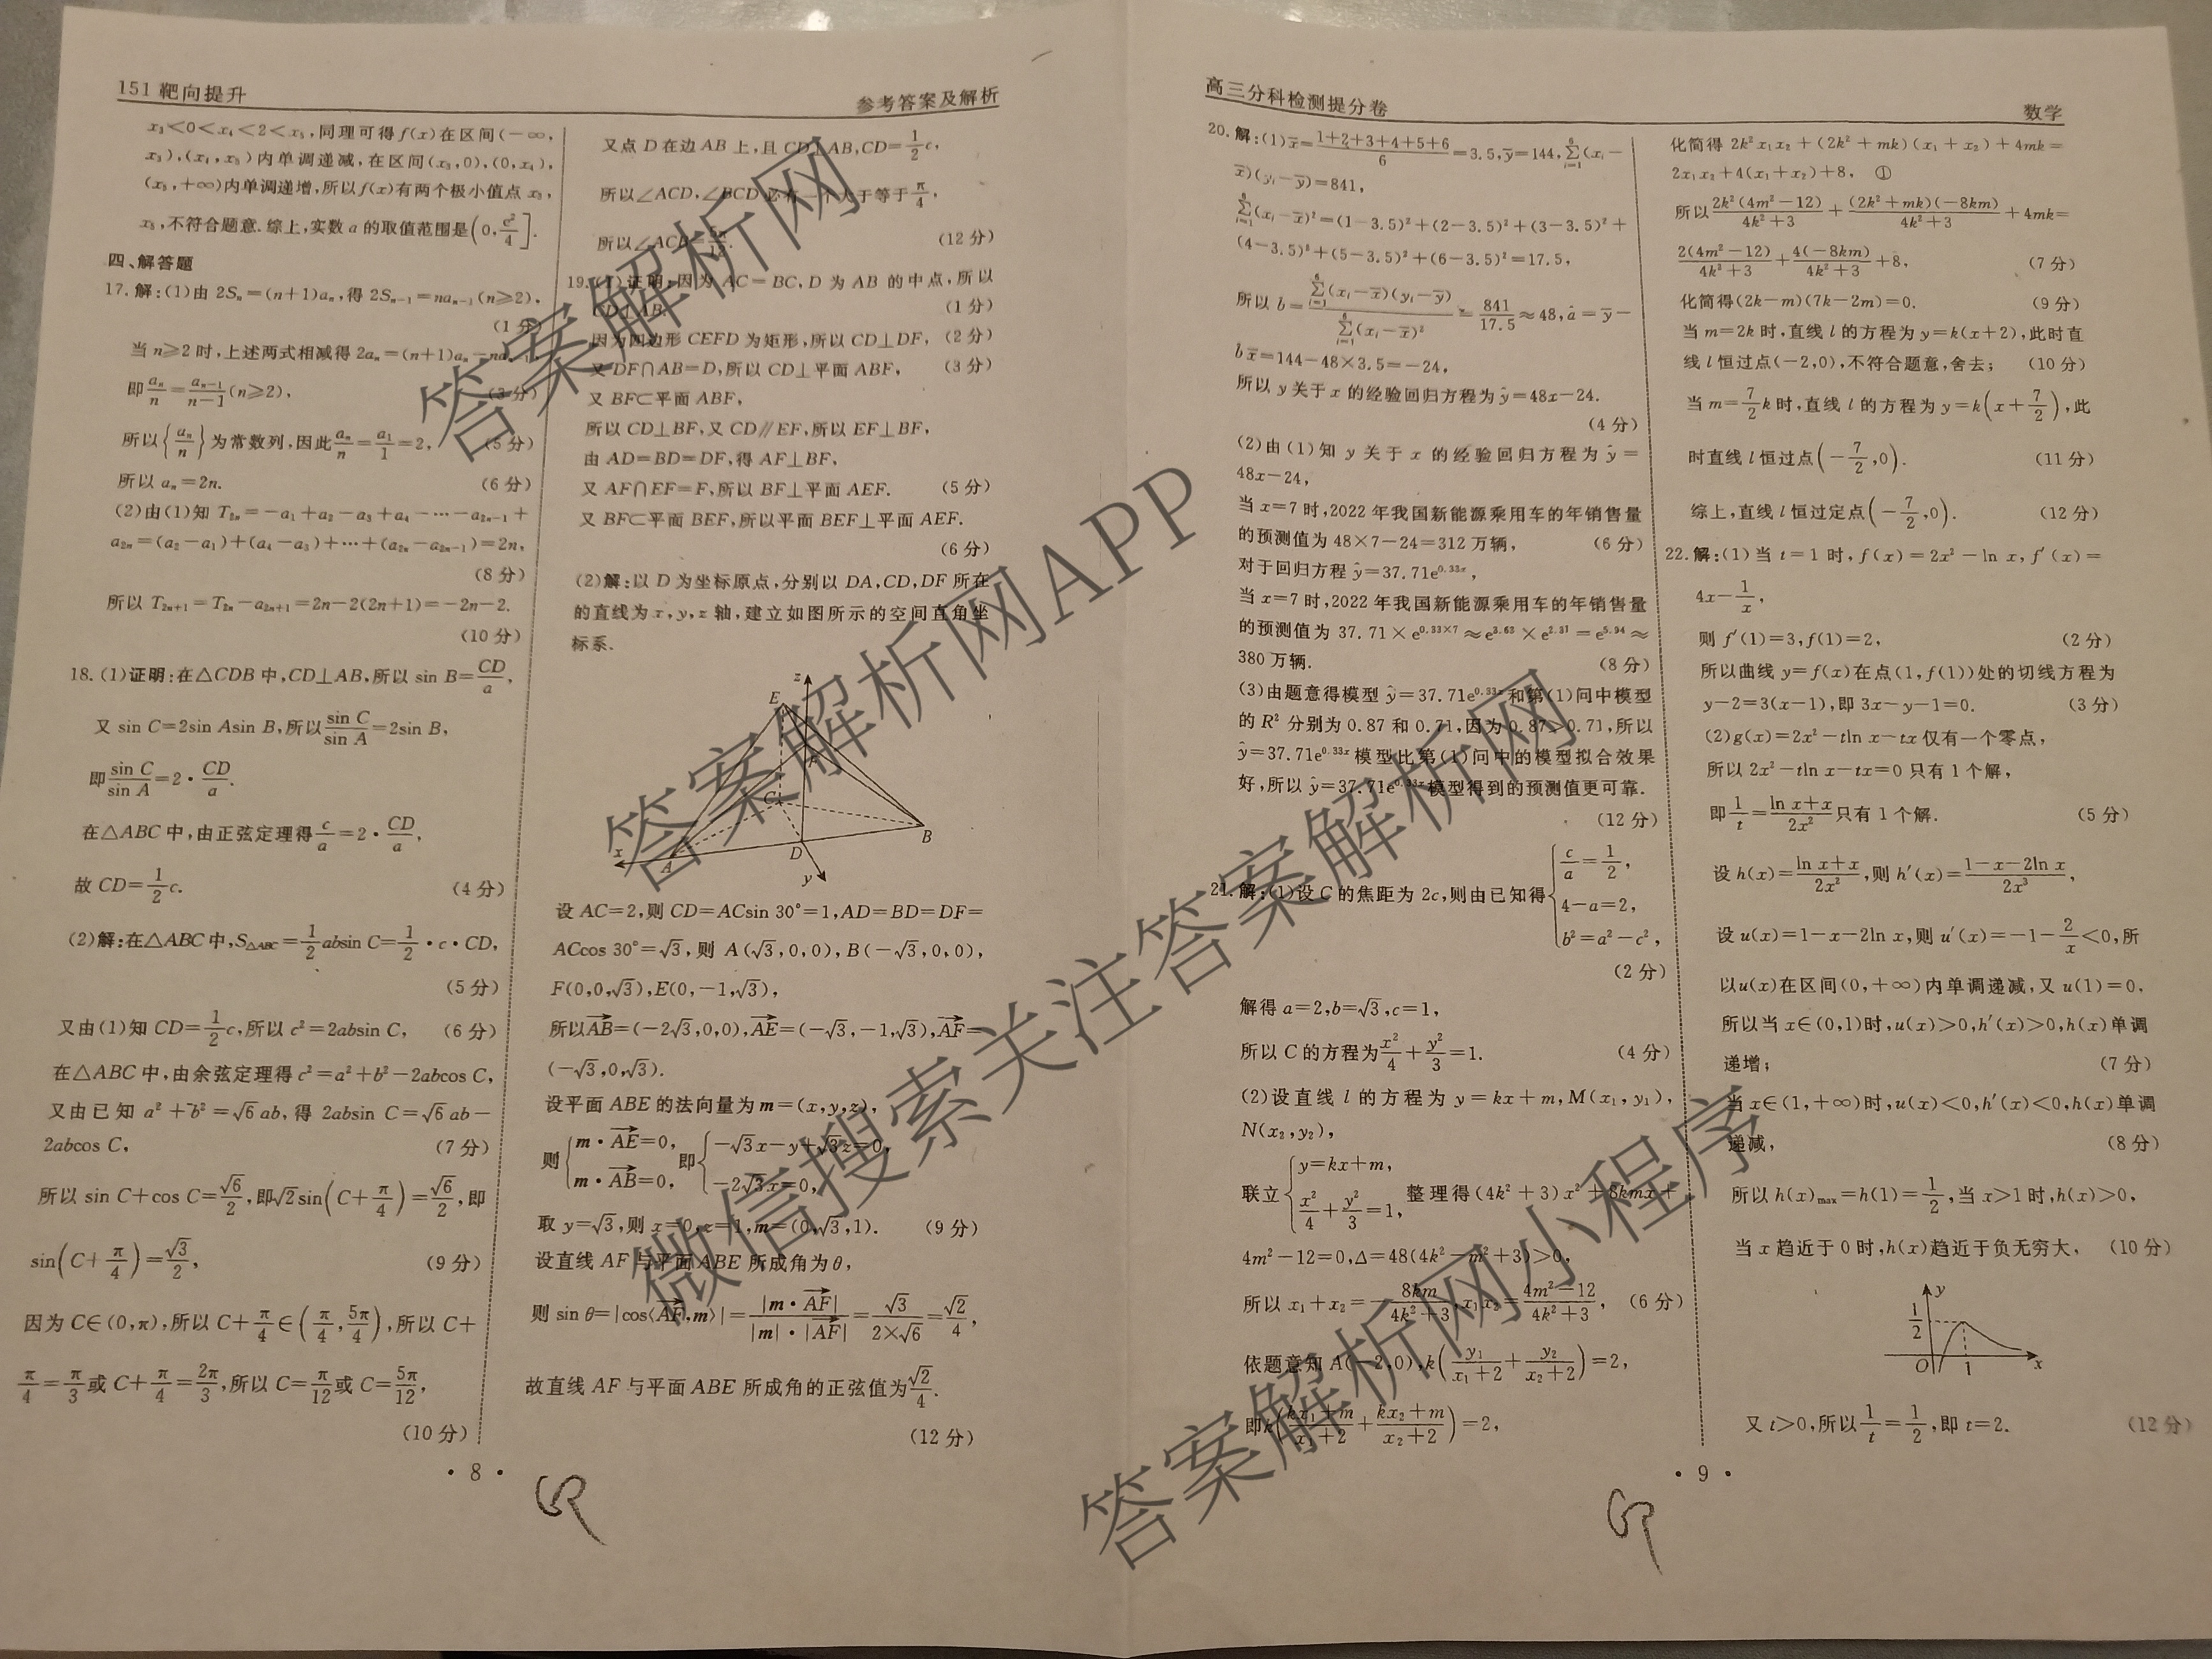 151 靶向提升
参考答案及解析
x₃<0<x₄<2<x₅,同理可得 f(x)在区间(-∞,
x₃),(x₄,x₅)内单调递减,在区间(x₃,0),(0,x₄),
(x₅,+∞)内单调递增,所以 f(x)有两个极小值点 x₃,
x₅,不符合题意.综上,实数 a 的取值范围是(0,e²/4].
四、解答题
17.解:(1)由 2Sₙ=(n+1)aₙ,得 2Sₙ₋₁=naₙ₋₁(n≥2),
(1 分)
当 n≥2 时,上述两式相减得 2aₙ=(n+1)aₙ-naₙ₋₁,
即 aₙ/n=aₙ₋₁/(n-1)(n≥2), (3 分)
所以{aₙ/n}为常数列,因此 aₙ/n=a₁/1=2, (5 分)
所以 aₙ=2n. (6 分)
(2)由(1)知 T₂ₙ=-a₁+a₂-a₃+a₄-…-a₂ₙ₋₁+
a₂ₙ=(a₂-a₁)+(a₄-a₃)+…+(a₂ₙ-a₂ₙ₋₁)=2n,
(8 分)
所以 T₂ₙ₊₁=T₂ₙ-a₂ₙ₊₁=2n-2(2n+1)=-2n-2.
(10 分)
18.(1)证明:在△CDB 中,CD⊥AB,所以 sin B=CD/a,
又 sin C=2sin Asin B,所以 sin C/sin A=2sin B,
即 sin C/sin A=2·CD/a.
在△ABC 中,由正弦定理得 c/a=2·CD/a,
故 CD=1/2c. (4 分)
(2)解:在△ABC 中,S△ABC=1/2absin C=1/2·c·CD,
(5 分)
又由(1)知 CD=1/2c,所以 c²=2absin C, (6 分)
在△ABC 中,由余弦定理得 c²=a²+b²-2abcos C,
又由已知 a²+b²=√6ab,得 2absin C=√6ab-
2abcos C, (7 分)
所以 sin C+cos C=√6/2,即√2sin(C+π/4)=√6/2,即
sin(C+π/4)=√3/2, (9 分)
因为 C∈(0,π),所以 C+π/4∈(π/4,5π/4),所以 C+
π/4=π/3或 C+π/4=2π/3,所以 C=π/12或 C=5π/12,
(10 分)
又点 D 在边 AB 上,且 CD⊥AB,CD=1/2c,
所以∠ACD,∠BCD 必有一个大于等于π/4,
所以∠ACB=5π/12. (12 分)
19.(1)证明:因为 AC=BC,D 为 AB 的中点,所以
CD⊥AB. (1 分)
因为四边形 CEFD 为矩形,所以 CD⊥DF, (2 分)
又 DF∩AB=D,所以 CD⊥平面 ABF, (3 分)
又 BF⊂平面 ABF,
所以 CD⊥BF,又 CD∥EF,所以 EF⊥BF,
由 AD=BD=DF,得 AF⊥BF,
又 AF∩EF=F,所以 BF⊥平面 AEF. (5 分)
又 BF⊂平面 BEF,所以平面 BEF⊥平面 AEF.
(6 分)
(2)解:以 D 为坐标原点,分别以 DA,CD,DF 所在
的直线为 x,y,z 轴,建立如图所示的空间直角坐
标系.
z
E
F
C
B
x
A
D
y
设 AC=2,则 CD=ACsin 30°=1,AD=BD=DF=
ACcos 30°=√3,则 A(√3,0,0),B(-√3,0,0),
F(0,0,√3),E(0,-1,√3),
所以AB→=(-2√3,0,0),AE→=(-√3,-1,√3),AF→=
(-√3,0,√3).
设平面 ABE 的法向量为 m=(x,y,z),
则{m·AE→=0, m·AB→=0, 即{-√3x-y+√3z=0, -2√3x=0,
取 y=√3,则 x=0,z=1,m=(0,√3,1). (9 分)
设直线 AF 与平面 ABE 所成角为 θ,
则 sin θ=|cos⟨AF→,m⟩|=|m·AF→|/(|m|·|AF→|)=√3/(2×√6)=√2/4,
故直线 AF 与平面 ABE 所成角的正弦值为√2/4.
(12 分)
· 8 ·
高三分科检测提分卷
数学
20.解:(1)x̄=(1+2+3+4+5+6)/6=3.5,ȳ=144,∑ᵢ₌₁⁶(xᵢ-
x̄)(yᵢ-ȳ)=841,
∑ᵢ₌₁⁶(xᵢ-x̄)²=(1-3.5)²+(2-3.5)²+(3-3.5)²+
(4-3.5)²+(5-3.5)²+(6-3.5)²=17.5,
所以 b̂=∑ᵢ₌₁⁶(xᵢ-x̄)(yᵢ-ȳ)/∑ᵢ₌₁⁶(xᵢ-x̄)²=841/17.5≈48,â=ȳ-
b̂x̄=144-48×3.5=-24,
所以 y 关于 x 的经验回归方程为ŷ=48x-24.
(4 分)
(2)由(1)知 y 关于 x 的经验回归方程为 ŷ=
48x-24,
当 x=7 时,2022 年我国新能源乘用车的年销售量
的预测值为 48×7-24=312 万辆, (6 分)
对于回归方程 ŷ=37.71e⁰·³³ˣ,
当 x=7 时,2022 年我国新能源乘用车的年销售量
的预测值为 37.71×e⁰·³³ˣ⁷≈e³·⁶³×e²·³¹=e⁵·⁹⁴≈
380 万辆. (8 分)
(3)由题意得模型 ŷ=37.71e⁰·³³ˣ和第(1)问中模型
的 R² 分别为 0.87 和 0.71,因为 0.87>0.71,所以
ŷ=37.71e⁰·³³ˣ 模型比第(1)问中的模型拟合效果
好,所以 ŷ=37.71e⁰·³³ˣ模型得到的预测值更可靠.
(12 分)
21.解:(1)设 C 的焦距为 2c,则由已知得{c/a=1/2, 4-a=2, b²=a²-c²,
(2 分)
解得 a=2,b=√3,c=1,
所以 C 的方程为x²/4+y²/3=1. (4 分)
(2)设直线 l 的方程为 y=kx+m,M(x₁,y₁),
N(x₂,y₂),
联立{y=kx+m, x²/4+y²/3=1, 整理得(4k²+3)x²+8kmx+
4m²-12=0,Δ=48(4k²-m²+3)>0,
所以 x₁+x₂=-8km/(4k²+3),x₁x₂=(4m²-12)/(4k²+3), (6 分)
依题意知 A(-2,0),k(y₁/(x₁+2)+y₂/(x₂+2))=2,
即k((kx₁+m)/(x₁+2)+(kx₂+m)/(x₂+2))=2,
化简得 2k²x₁x₂+(2k²+mk)(x₁+x₂)+4mk=
2x₁x₂+4(x₁+x₂)+8, ①
所以2k²(4m²-12)/(4k²+3)+(2k²+mk)(-8km)/(4k²+3)+4mk=
2(4m²-12)/(4k²+3)+4(-8km)/(4k²+3)+8, (7 分)
化简得(2k-m)(7k-2m)=0. (9 分)
当 m=2k 时,直线 l 的方程为 y=k(x+2),此时直
线 l 恒过点(-2,0),不符合题意,舍去; (10 分)
当 m=7/2k 时,直线 l 的方程为 y=k(x+7/2),此
时直线 l 恒过点(-7/2,0). (11 分)
综上,直线 l 恒过定点(-7/2,0). (12 分)
22.解:(1)当 t=1 时,f(x)=2x²-ln x,f′(x)=
4x-1/x,
则 f′(1)=3,f(1)=2, (2 分)
所以曲线 y=f(x)在点(1,f(1))处的切线方程为
y-2=3(x-1),即 3x-y-1=0. (3 分)
(2)g(x)=2x²-tln x-tx 仅有一个零点,
所以 2x²-tln x-tx=0 只有 1 个解,
即1/t=(ln x+x)/2x²只有 1 个解. (5 分)
设 h(x)=(ln x+x)/2x²,则 h′(x)=(1-x-2ln x)/2x³,
设 u(x)=1-x-2ln x,则 u′(x)=-1-2/x<0,所
以u(x)在区间(0,+∞)内单调递减,又 u(1)=0,
所以当 x∈(0,1)时,u(x)>0,h′(x)>0,h(x)单调
递增; (7 分)
当 x∈(1,+∞)时,u(x)<0,h′(x)<0,h(x)单调
递减, (8 分)
所以 h(x)ₘₐₓ=h(1)=1/2,当 x>1 时,h(x)>0,
当 x 趋近于 0 时,h(x)趋近于负无穷大, (10 分)
y
1/2
O 1 x
又 t>0,所以1/t=1/2,即 t=2. (12 分)
· 9 ·
答案解析网
答案解析网APP
微信搜索关注答案解析网
答案解析网小程序